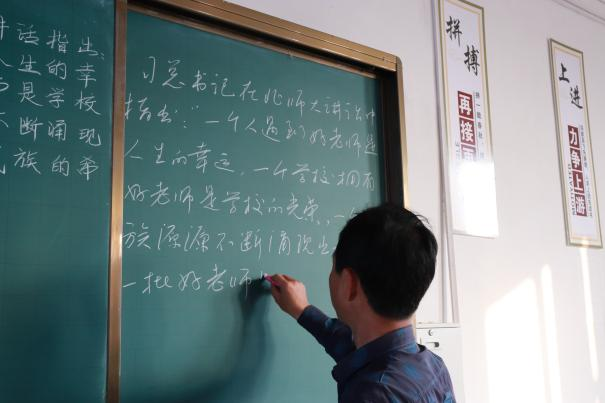 话指出:
人生的幸
是学校
不断涌现
族的希
习总书记在北师大讲话中
指出:一个人遇到好老师是
人生的幸运,一个学校拥有
好老师是学校的光荣,一
族源源不断涌现出
一批好老师
拼搏
再接
上进
力争上游